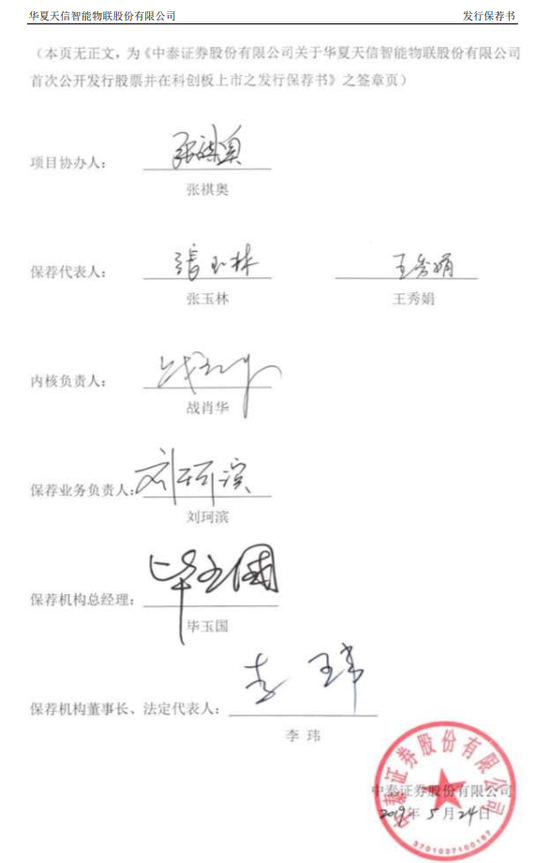 华夏天信智能物联股份有限公司 发行保荐书
（本页无正文，为《中泰证券股份有限公司关于华夏天信智能物联股份有限公司
首次公开发行股票并在科创板上市之发行保荐书》之签章页）
张祺奥
项目协办人：
张祺奥
张玉林 王秀娟
保荐代表人：
张玉林 王秀娟
内核负责人：
战肖华
刘珂滨
保荐业务负责人：
刘珂滨
毕玉国
保荐机构总经理：
毕玉国
李玮
保荐机构董事长、法定代表人：
李 玮
中泰证券股份有限公司
中泰证券股份有限公司
2019年 5 月 24 日
3701037100187